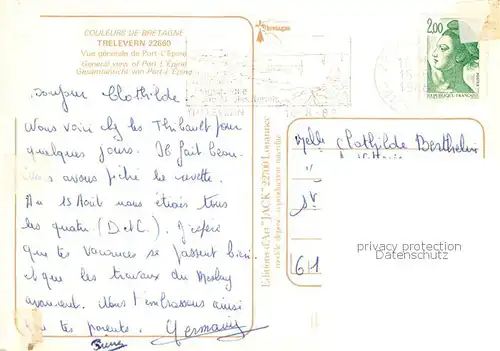 COULEURS DE BRETAGNE
TRELEVERN 22660
Vue générale de Port-L'Epine
General view of Port L'Epine
Gesamtansicht von Port-L'Epine
Bretagne
2,00
REPUBLIQUE FRANÇAISE
Bonjour Clothilde.
Nous voici chez les Thibault pour
quelques jours. Il fait beau.
nous avons pêché la crevette.
Au 15 Août nous étions tous
les quatre (D et C). J'espère
que tes vacances se passent bien
et que les travaux du
avancent. Nous t'embrassons ainsi
que tes parents. Germaine
Editions d'Art "JACK" 22700 Louannec
modèle déposé - reproduction interdite
Melle Clothilde Berthelin
61
privacy protection
Datenschutz